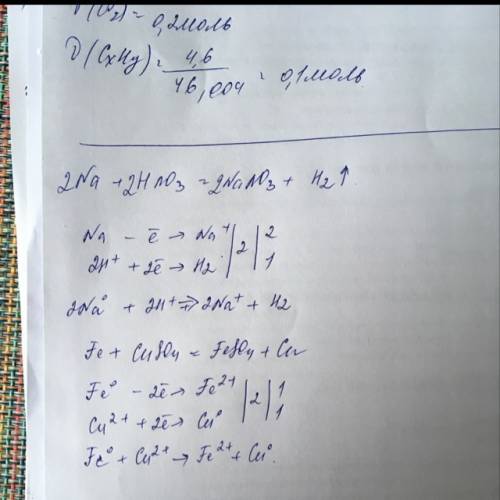 ν(CO₂) = 0,2моль
ν(CxHy) = 4,6 / 46,004 = 0,1моль
2Na + 2HNO₃ = 2NaNO₃ + H₂↑
Na - ē → Na⁺ | 2 | 2
2H⁺ + 2ē → H₂ | 1
2Na⁰ + 2H⁺ → 2Na⁺ + H₂
Fe + CuSO₄ = FeSO₄ + Cu
Fe⁰ - 2ē → Fe²⁺ | 2 | 1
Cu²⁺ + 2ē → Cu⁰ | 1
Fe⁰ + Cu²⁺ → Fe²⁺ + Cu⁰.